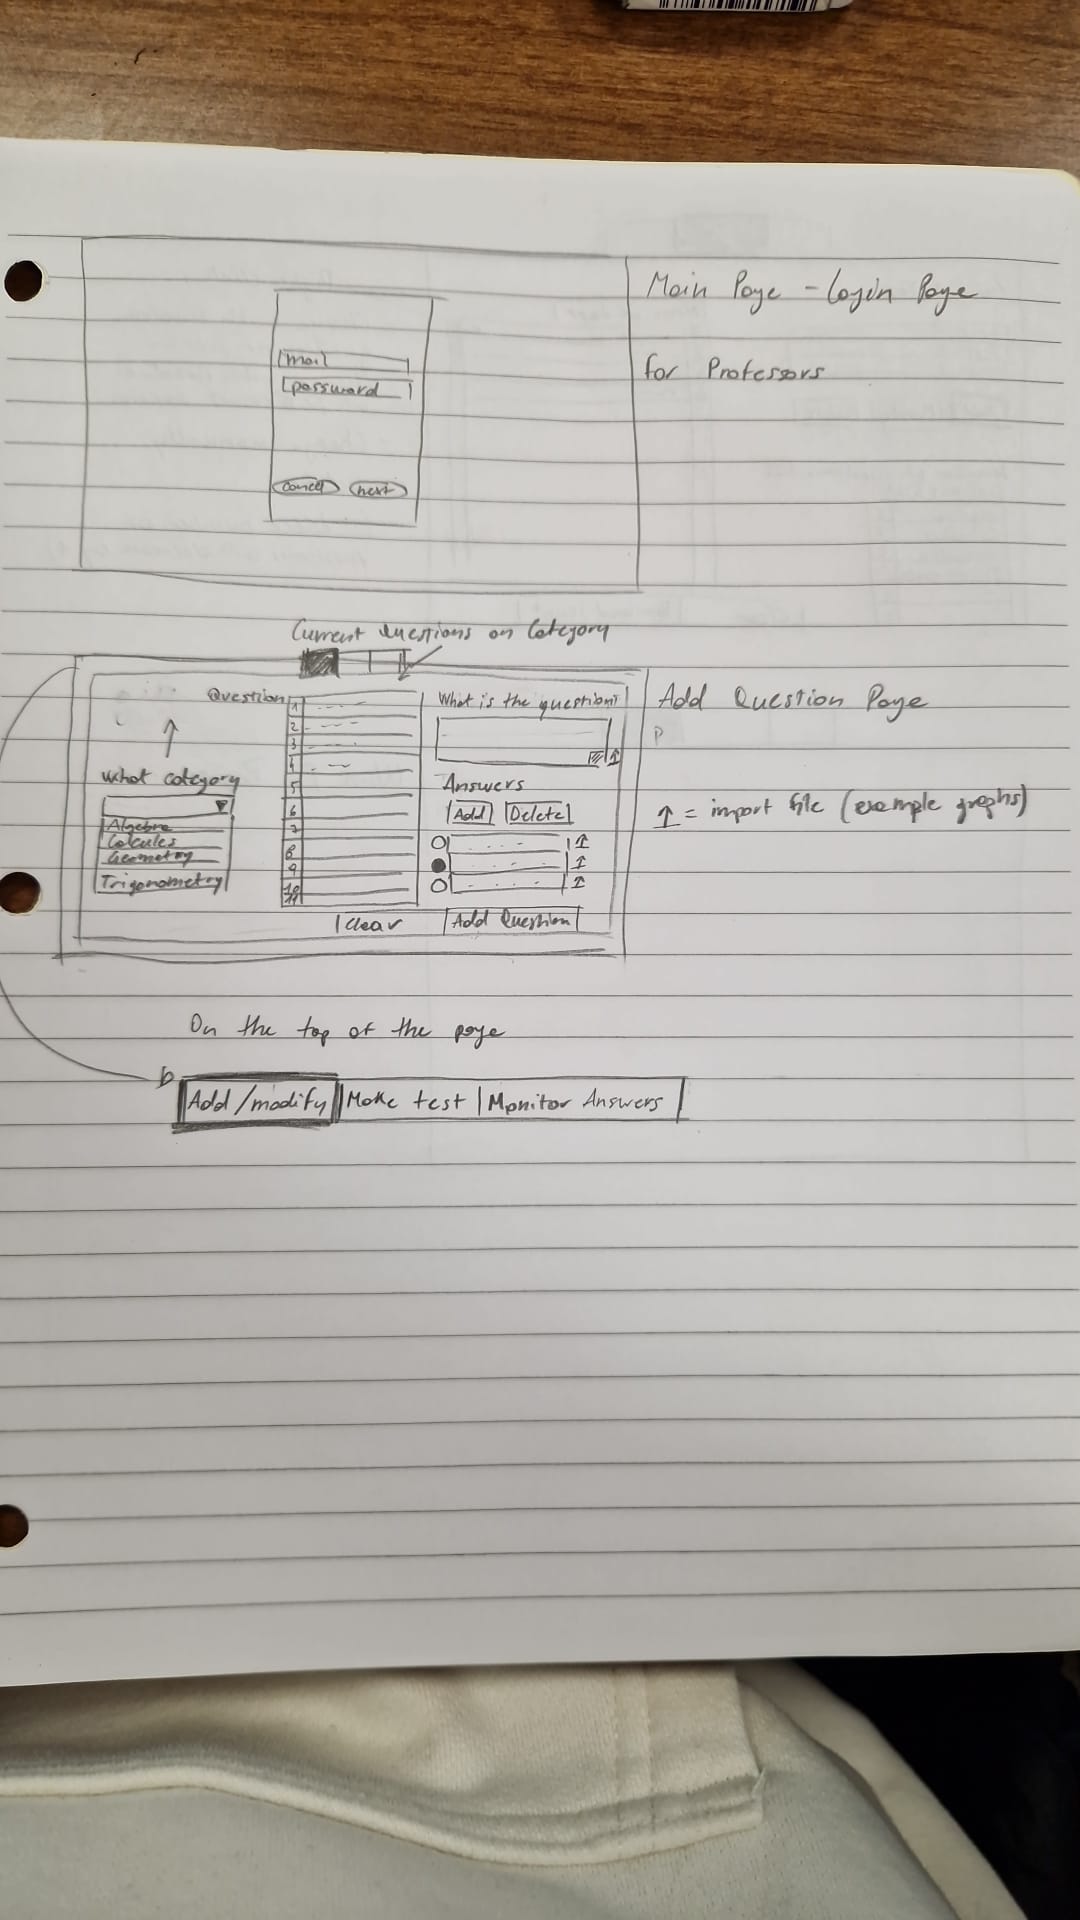 Main Page - Login Page
for Professors
mail
password
cancel
next
Current Questions on Category
Question
1
2
3
4
5
6
7
8
9
10
11
What category
Algebra
Calcules
Geometry
Trigonometry
What is the question?
Answers
Add
Delete
Clear
Add Question
Add Question Page
P
↑ = import file (example graphs)
On the top of the page
Add/modify | Make test | Monitor Answers